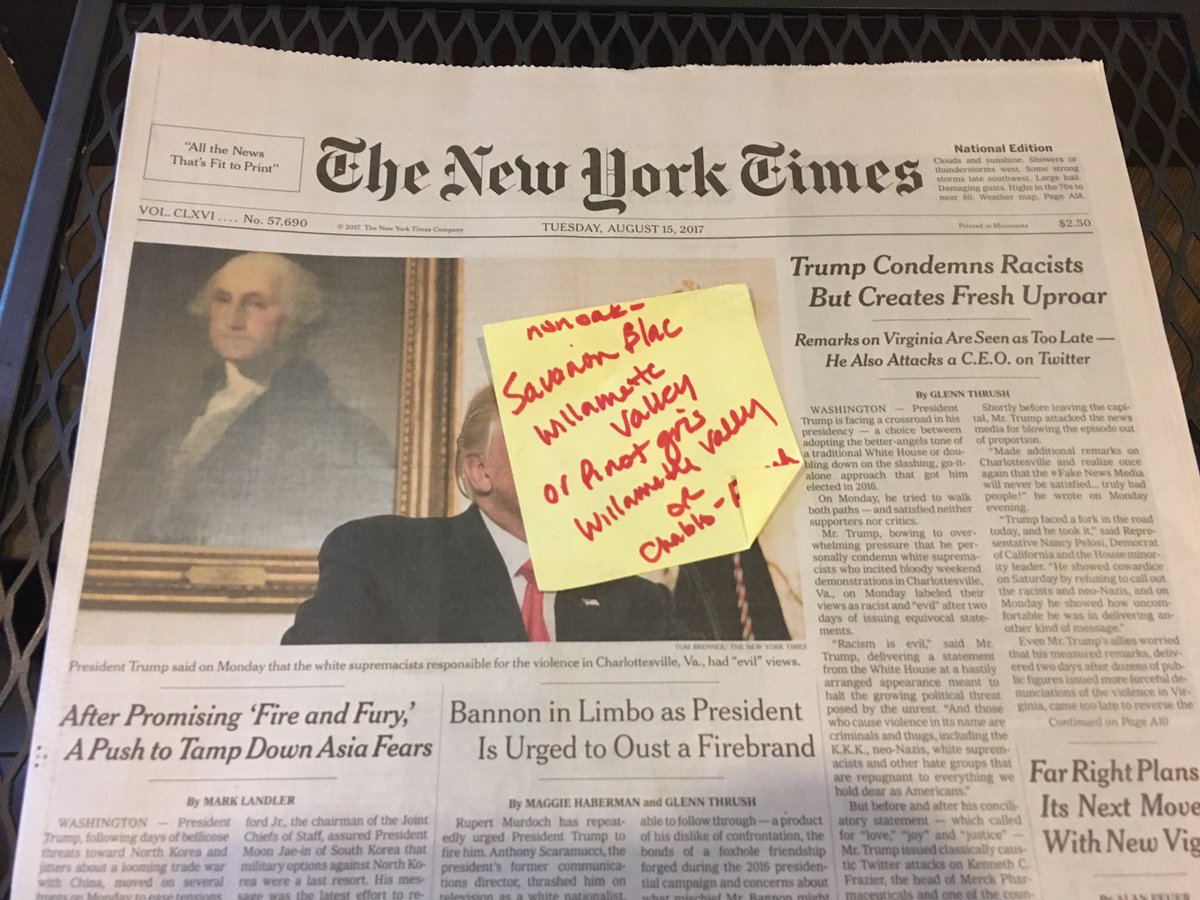 "All the News
That's Fit to Print"
The New York Times
National Edition
Clouds and sunshine. Showers or
thunderstorms west. Some strong
storms late southwest. Large hail.
Damaging gusts. Highs in the 70s to
near 80. Weather map, Page A18.
VOL. CLXVI .... No. 57,690
© 2017 The New York Times Company
TUESDAY, AUGUST 15, 2017
Printed in Minnesota
$2.50
non oak-
Savanon Blac
Willamette
Valley
or Pinot gris
Willamette Valley
or
Chablis-
TOM BRENNER/THE NEW YORK TIMES
President Trump said on Monday that the white supremacists responsible for the violence in Charlottesville, Va., had "evil" views.
Trump Condemns Racists
But Creates Fresh Uproar
Remarks on Virginia Are Seen as Too Late —
He Also Attacks a C.E.O. on Twitter
By GLENN THRUSH
WASHINGTON — President
Trump is facing a crossroad in his
presidency — a choice between
adopting the better-angels tone of
a traditional White House or dou-
bling down on the slashing, go-it-
alone approach that got him
elected in 2016.
On Monday, he tried to walk
both paths — and satisfied neither
supporters nor critics.
Mr. Trump, bowing to over-
whelming pressure that he per-
sonally condemn white suprema-
cists who incited bloody weekend
demonstrations in Charlottesville,
Va., on Monday labeled their
views as racist and "evil" after two
days of issuing equivocal state-
ments.
"Racism is evil," said Mr.
Trump, delivering a statement
from the White House at a hastily
arranged appearance meant to
halt the growing political threat
posed by the unrest. "And those
who cause violence in its name are
criminals and thugs, including the
K.K.K., neo-Nazis, white suprem-
acists and other hate groups that
are repugnant to everything we
hold dear as Americans."
But before and after his concil-
iatory statement — which called
for "love," "joy" and "justice" —
Mr. Trump issued classically caus-
tic Twitter attacks on Kenneth C.
Frazier, the head of Merck Phar-
maceuticals and one of the coun-
Shortly before leaving the capi-
tal, Mr. Trump attacked the news
media for blowing the episode out
of proportion.
"Made additional remarks on
Charlottesville and realize once
again that the #Fake News Media
will never be satisfied... truly bad
people!" he wrote on Monday
evening.
"Trump faced a fork in the road
today, and he took it," said Repre-
sentative Nancy Pelosi, Democrat
of California and the House minor-
ity leader. "He showed cowardice
on Saturday by refusing to call out
the racists and neo-Nazis, and on
Monday he showed how uncom-
fortable he was in delivering an-
other kind of message."
Even Mr. Trump's allies worried
that his measured remarks, deliv-
ered two days after dozens of pub-
lic figures issued more forceful de-
nunciations of the violence in Vir-
ginia, came too late to reverse the
Continued on Page A10
After Promising 'Fire and Fury,'
A Push to Tamp Down Asia Fears
By MARK LANDLER
WASHINGTON — President
Trump, following days of bellicose
threats toward North Korea and
jitters about a looming trade war
with China, moved on several
fronts on Monday to ease tensions
ford Jr., the chairman of the Joint
Chiefs of Staff, assured President
Moon Jae-in of South Korea that
military options against North Ko-
rea were a last resort. His mes-
sage was the latest effort to re-
Bannon in Limbo as President
Is Urged to Oust a Firebrand
By MAGGIE HABERMAN and GLENN THRUSH
Rupert Murdoch has repeat-
edly urged President Trump to
fire him. Anthony Scaramucci, the
president's former communica-
tions director, thrashed him on
television as a white nationalist.
able to follow through — a product
of his dislike of confrontation, the
bonds of a foxhole friendship
forged during the 2016 presiden-
tial campaign and concerns about
what mischief Mr. Bannon might
Far Right Plans
Its Next Move
With New Vig
By ALAN FEUER